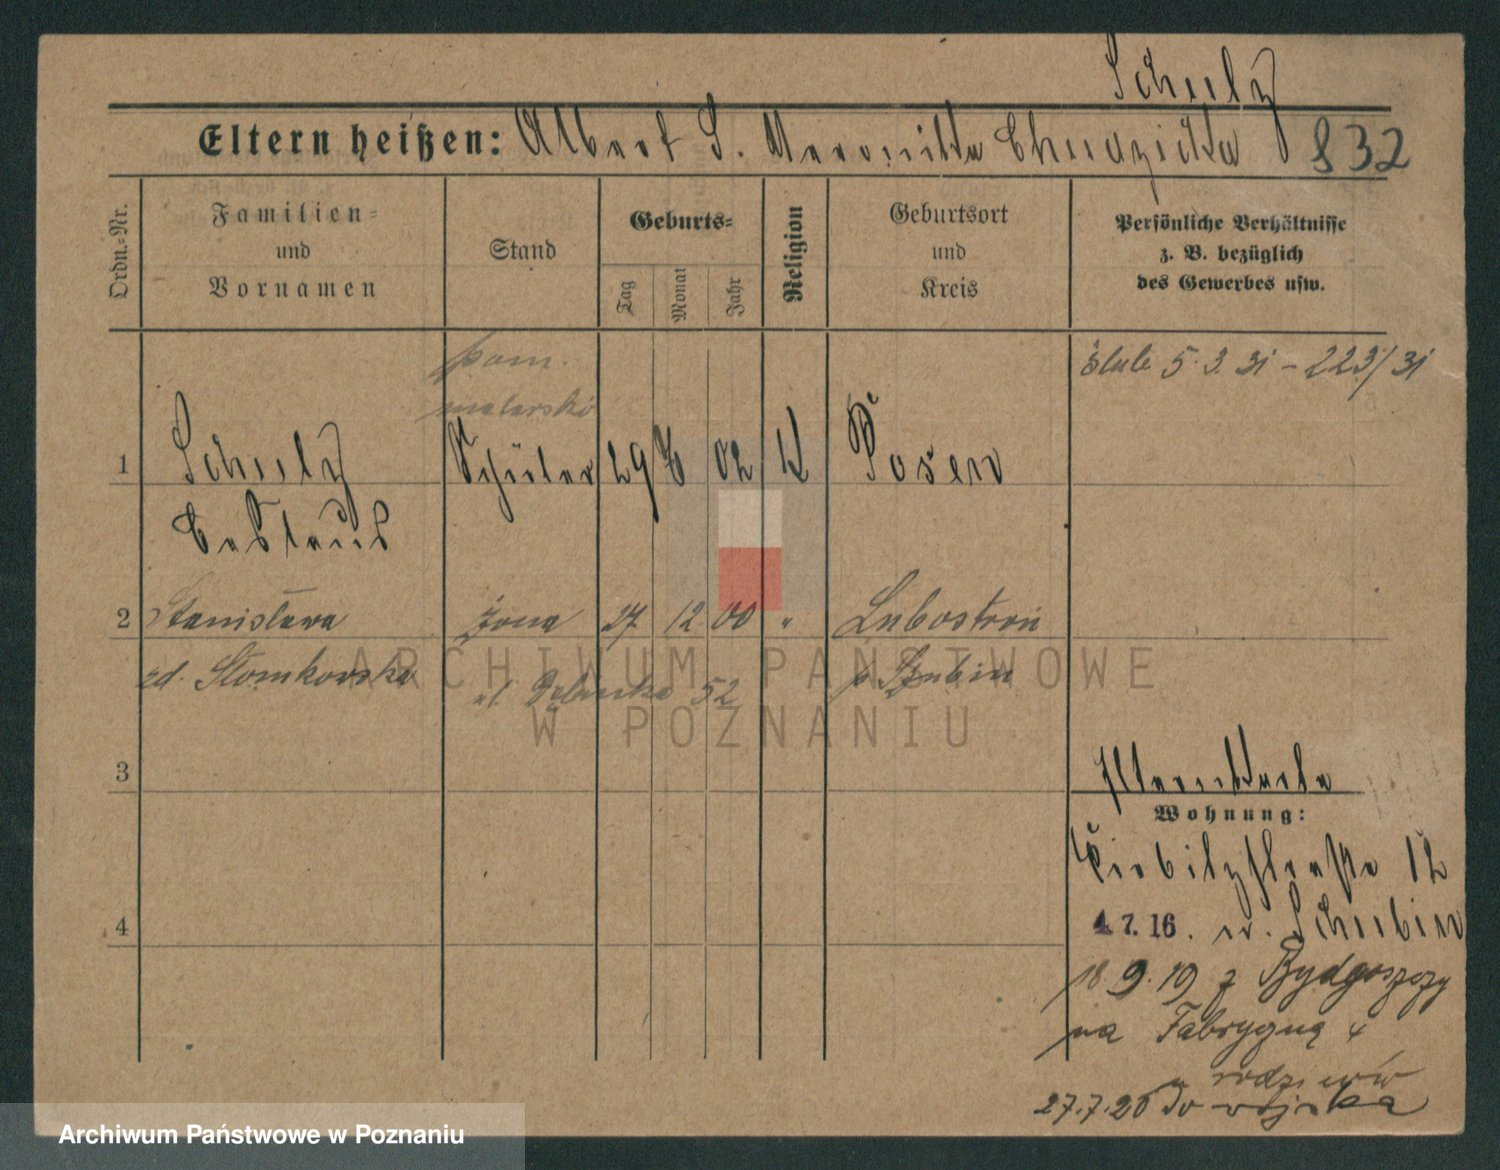 Schulz
Eltern heißen: Albert S. Veronika Chudzicka 832
Ordn.=Nr.
Familien=
und
Vornamen
Stand
Geburts=
Tag
Monat
Jahr
Religion
Geburtsort
und
Kreis
Persönliche Verhältnisse
z. B. bezüglich
des Gewerbes usw.
pom.
malarski
ślub 5.3.31 - 223/31
1 Schulz Schüler 29 02 K Posen
2 Stanisława żona 27 12 00 " Lubostroń
zd. Słomkowska ul 52 p Szubin
3
4
Wohnung:
12
4.7.16. n. Schubin
18.9.19 z Bydgoszczy
na Fabryczną 4
u rodziców
27.7.20 do wojska
ARCHIWUM PAŃSTWOWE
W POZNANIU
Archiwum Państwowe w Poznaniu